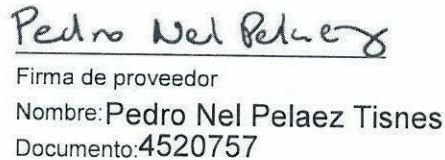 Pedro Nel Pelaez
Firma de proveedor
Nombre:Pedro Nel Pelaez Tisnes
Documento:4520757